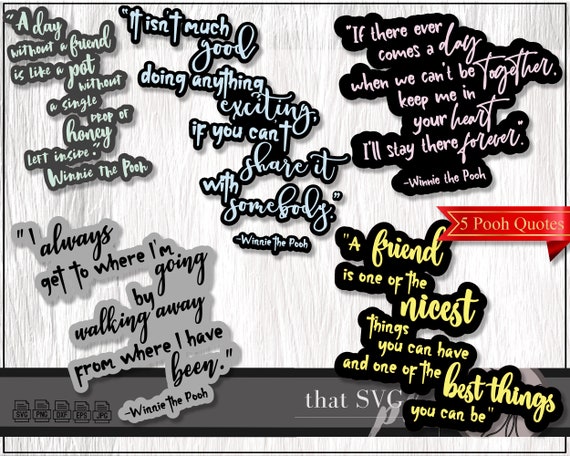 "A day
without a friend
is like a pot
without
a single
drop of
honey
left inside."
Winnie The Pooh
"It isn't much
good
doing anything
exciting,
if you can't
share it
with
somebody."
-Winnie the Pooh
"If there ever
comes a day
when we can't be together,
keep me in
your heart
I'll stay there forever."
-Winnie the Pooh
5 Pooh Quotes
"I always
get to where I'm
going
by
walking away
from where I have
been."
-Winnie the Pooh
"A friend
is one of the
nicest
things
you can have
and one of the
best things
you can be"
SVG PNG DXF EPS JPG
that SVG